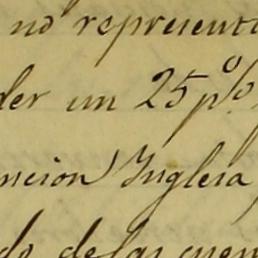 no representa
der un 25 p%
ncion Inglesa
do de las cuen